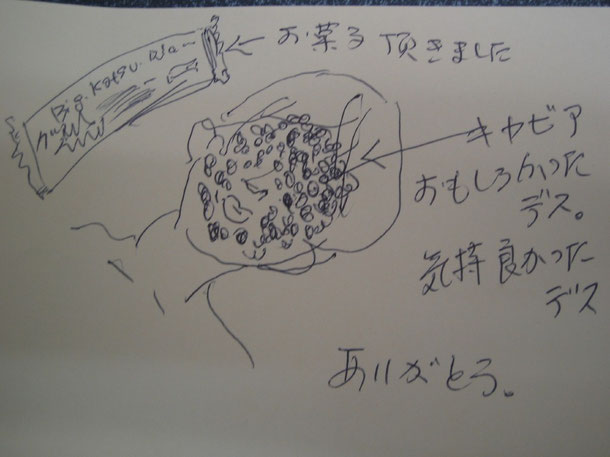 お菓子頂きました
Big. Katsu.
キャビア
おもしろかった
デス。
気持良かった
デス
ありがとう。